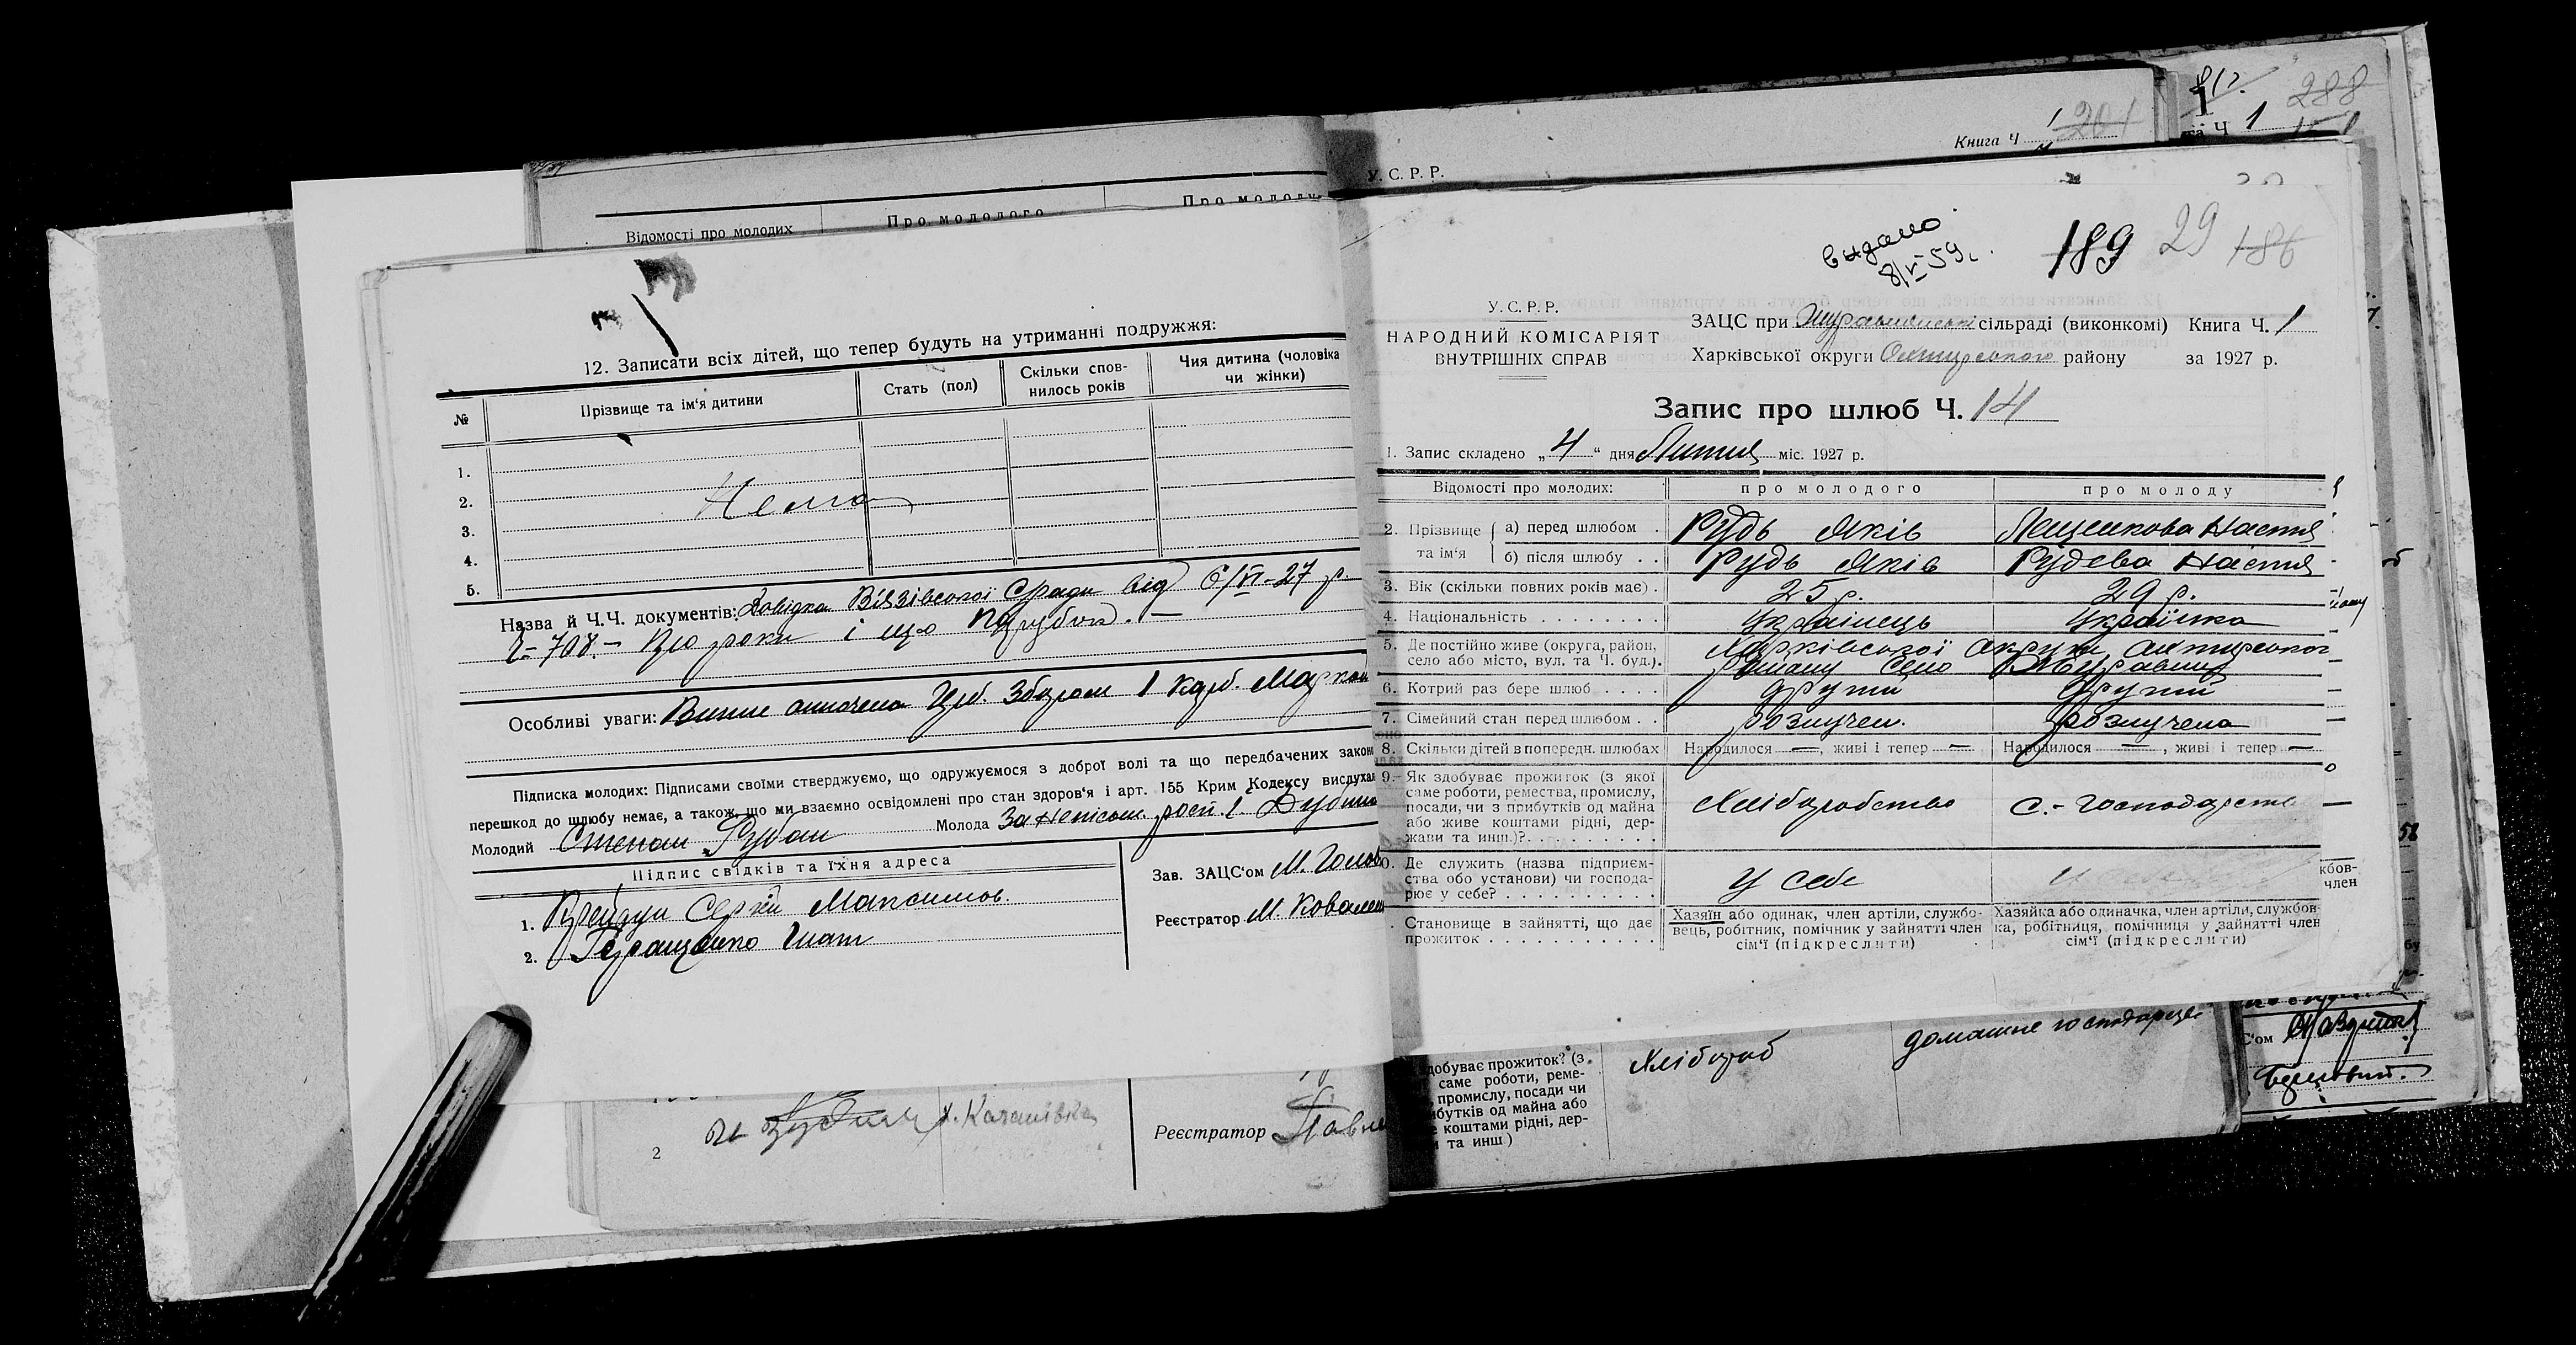 Книга Ч 1 201
1 288
Ч 1
У. С. Р. Р.
Відомості про молодих
Про молодого
Про молоду
12. Записати всіх дітей, що тепер будуть на утриманні подружжя:
№
Прізвище та ім'я дитини
Стать (пол)
Скільки спов-
нилось років
Чия дитина (чоловіка
чи жінки)
1.
2. Нема
3.
4.
5.
Назва й Ч.Ч. документів: Довідка Вязівської с/ради від 6/VI-27 р.
Ч-708.- Про роки і що парубок. —
Особливі уваги: оплочена 1 карб.
Підписка молодих: Підписами своїми стверджуємо, що одружуємося з доброї волі та що передбачених закон
перешкод до шлюбу немає, а також, що ми взаємно освідомлені про стан здоров'я і арт. 155 Крим Кодексу вислуха
Молодий Степан Рубан Молода За неписьм. розп.
Підпис свідків та їхня адреса
1. Сергій Максимов.
2. Геращенко Гнат
Зав. ЗАЦС'ом М. Голов
Реєстратор М. Ковален
2 х. Качанівка
Реєстратор Павле
видано
8/V-59 г.
189 29 186
У. С. Р. Р.
НАРОДНИЙ КОМІСАРІЯТ
ВНУТРІШНІХ СПРАВ
ЗАЦС при Журавинській сільраді (виконкомі) Книга Ч. 1
Харківської округи Охтирського району за 1927 р.
Запис про шлюб Ч. 14
1. Запис складено „ 4 " дня Липня міс. 1927 р.
Відомості про молодих:
про молодого
про молоду
2. Прізвище та ім'я
а) перед шлюбом . Рудь Яків Лещенкова Настя
б) після шлюбу . . Рудь Яків Рудева Настя
3. Вік (скільки повних років має) . 25 р. 29 р.
4. Національність . . . . . . . . Українець Українка
5. Де постійно живе (округа, район,
село або місто, вул. та Ч. буд.). Харківської округи Охтирського
району село Журавине
6. Котрий раз бере шлюб . . . . другий другий
7. Сімейний стан перед шлюбом . . розлучен. розлучена
8. Скільки дітей в попередн. шлюбах Народилося —, живі і тепер — Народилося —, живі і тепер —
9. Як здобуває прожиток (з якої
саме роботи, ремества, промислу,
посади, чи з прибутків од майна
або живе коштами рідні, дер-
жави та инш.)? . . . . . . . . . . Хліборобство с.-господарство
0. Де служить (назва підприєм-
ства або установи) чи господа-
рює у себе? . . . . . . . . . . . у себе
. Становище в зайнятті, що дає
прожиток . . . . . . . . . . . .
Хазяїн або одинак, член артіли, службо-
вець, робітник, помічник у зайнятті член
сім'ї (підкреслити)
Хазяйка або одиначка, член артіли, службов-
ка, робітниця, помічниця у зайнятті член
сім'ї (підкреслити)
58
кбов-
член
добуває прожиток? (з
саме роботи, реме-
промислу, посади чи
ибутків од майна або
е коштами рідні, дер-
и та инш.)
Хлібороб
домашнє
С'ом